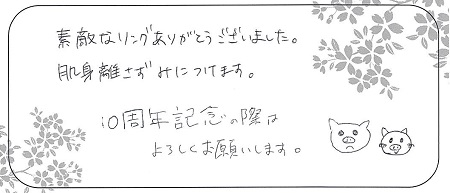 素敵なリングありがとうございました。
肌身離さずみにつけます。
10周年記念の際は
よろしくお願いします。